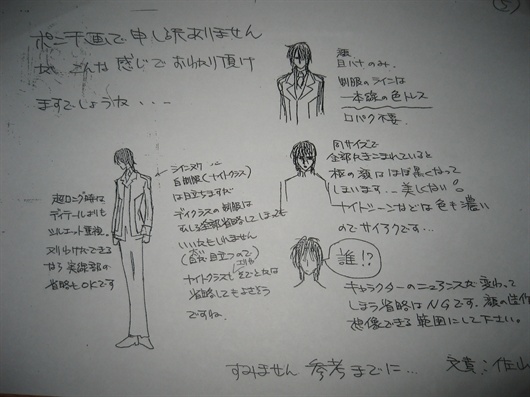 ⑤
ポンチ画で申し訳ありません
が、こんな感じでおわかり頂け
ますでしょうか・・・
目ハナのみ。
制服のラインは
一本線の色トレス
口パク不要
同サイズで
全部かきこまれていると
枢の顔はほぼ黒くなって
しまいます…美しくない
ナイトシーンなどは色も濃い
のでサイアクです…
ラインヌケ
白制服(ナイトクラス)
は目立ちますが
デイクラスの制服は
むしろ全部省略してしまっても
いいかもしれません
(白が目立つので)
ナイトクラスも
省略してもよさそう
ですね
超ロング時は
ディテールよりも
シルエット重視。
かきわけできる
なら実線部の
省略もOKです
誰!?
キャラクターのニュアンスが変わって
しまう省略はNGです。顔の造作
想像できる範囲にして下さい。
すみません 参考までに…
文責:佐山